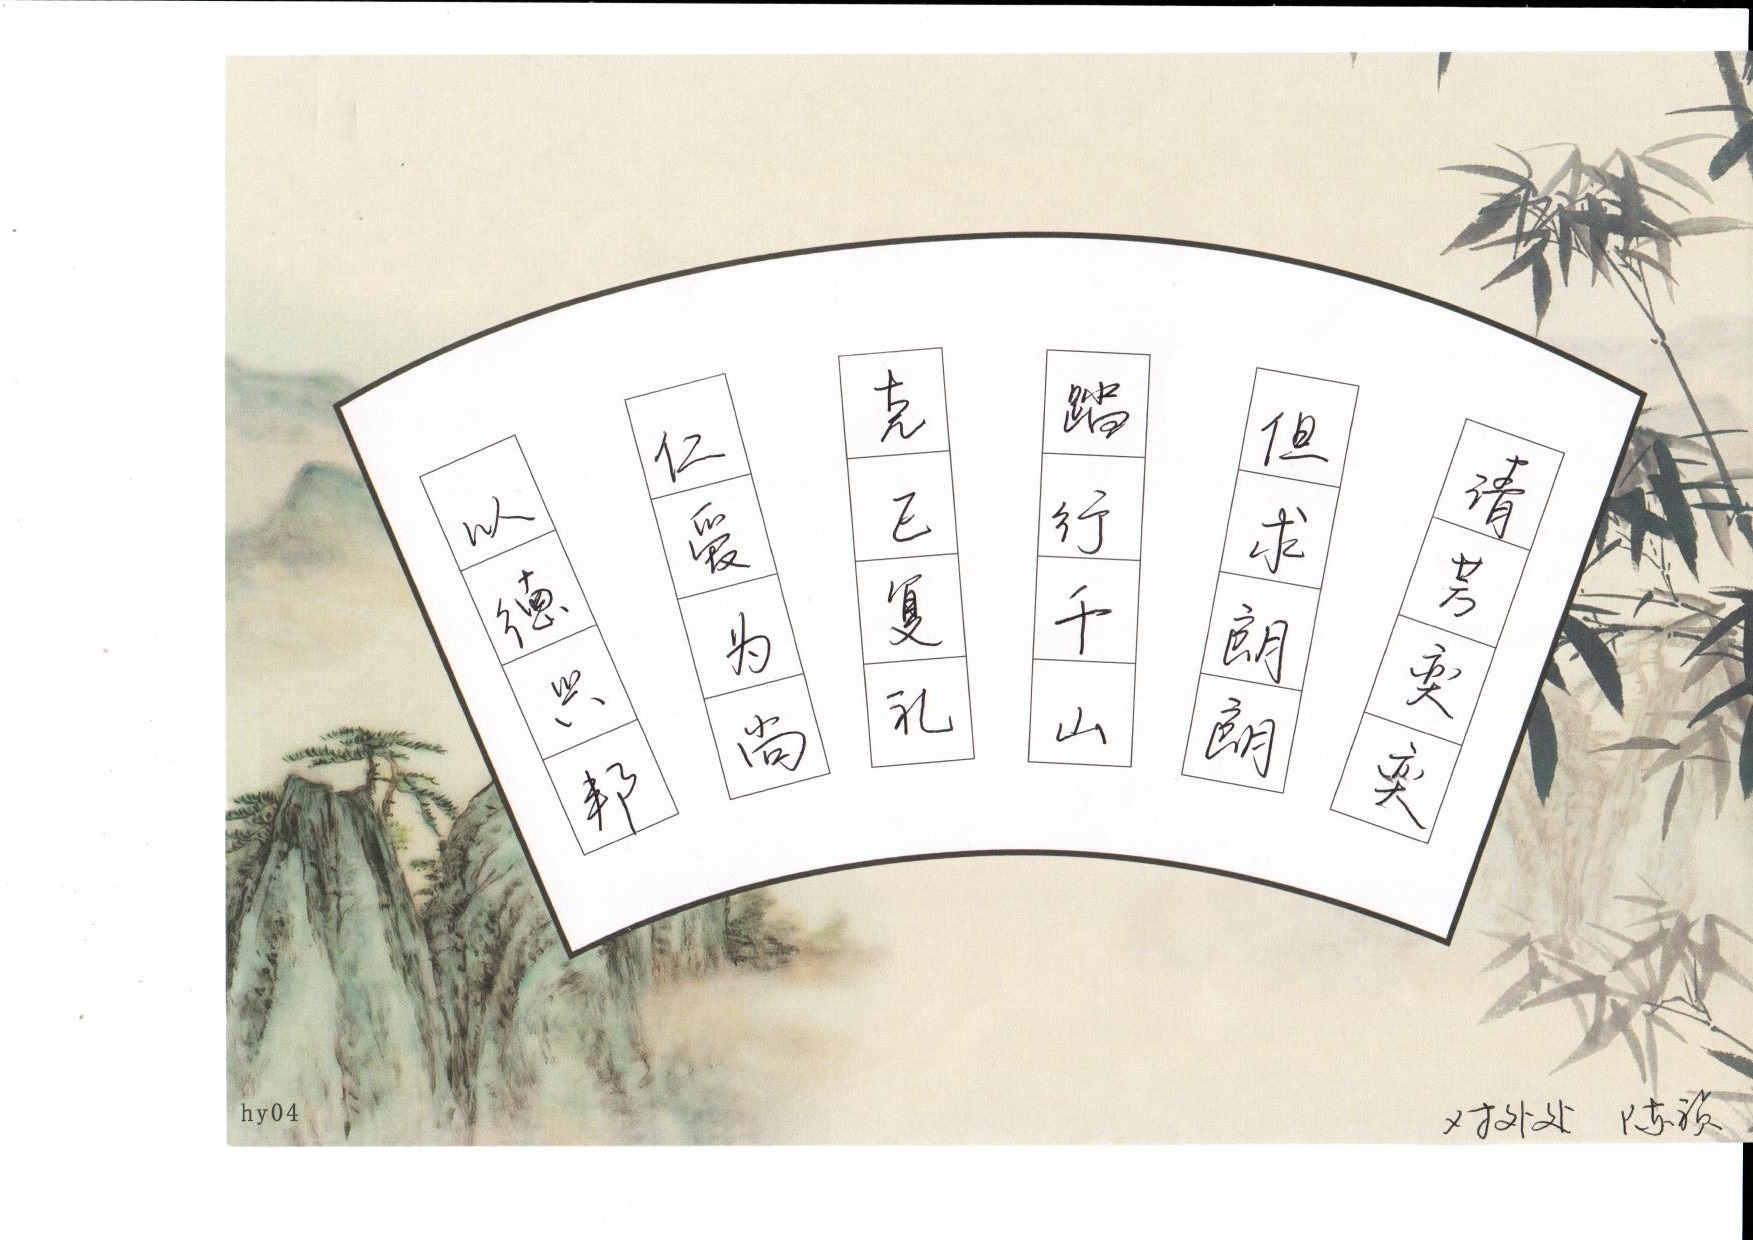 清芳奕奕
但求朗朗
踏行千山
克己复礼
仁爱为尚
以德兴邦
hy04
陈